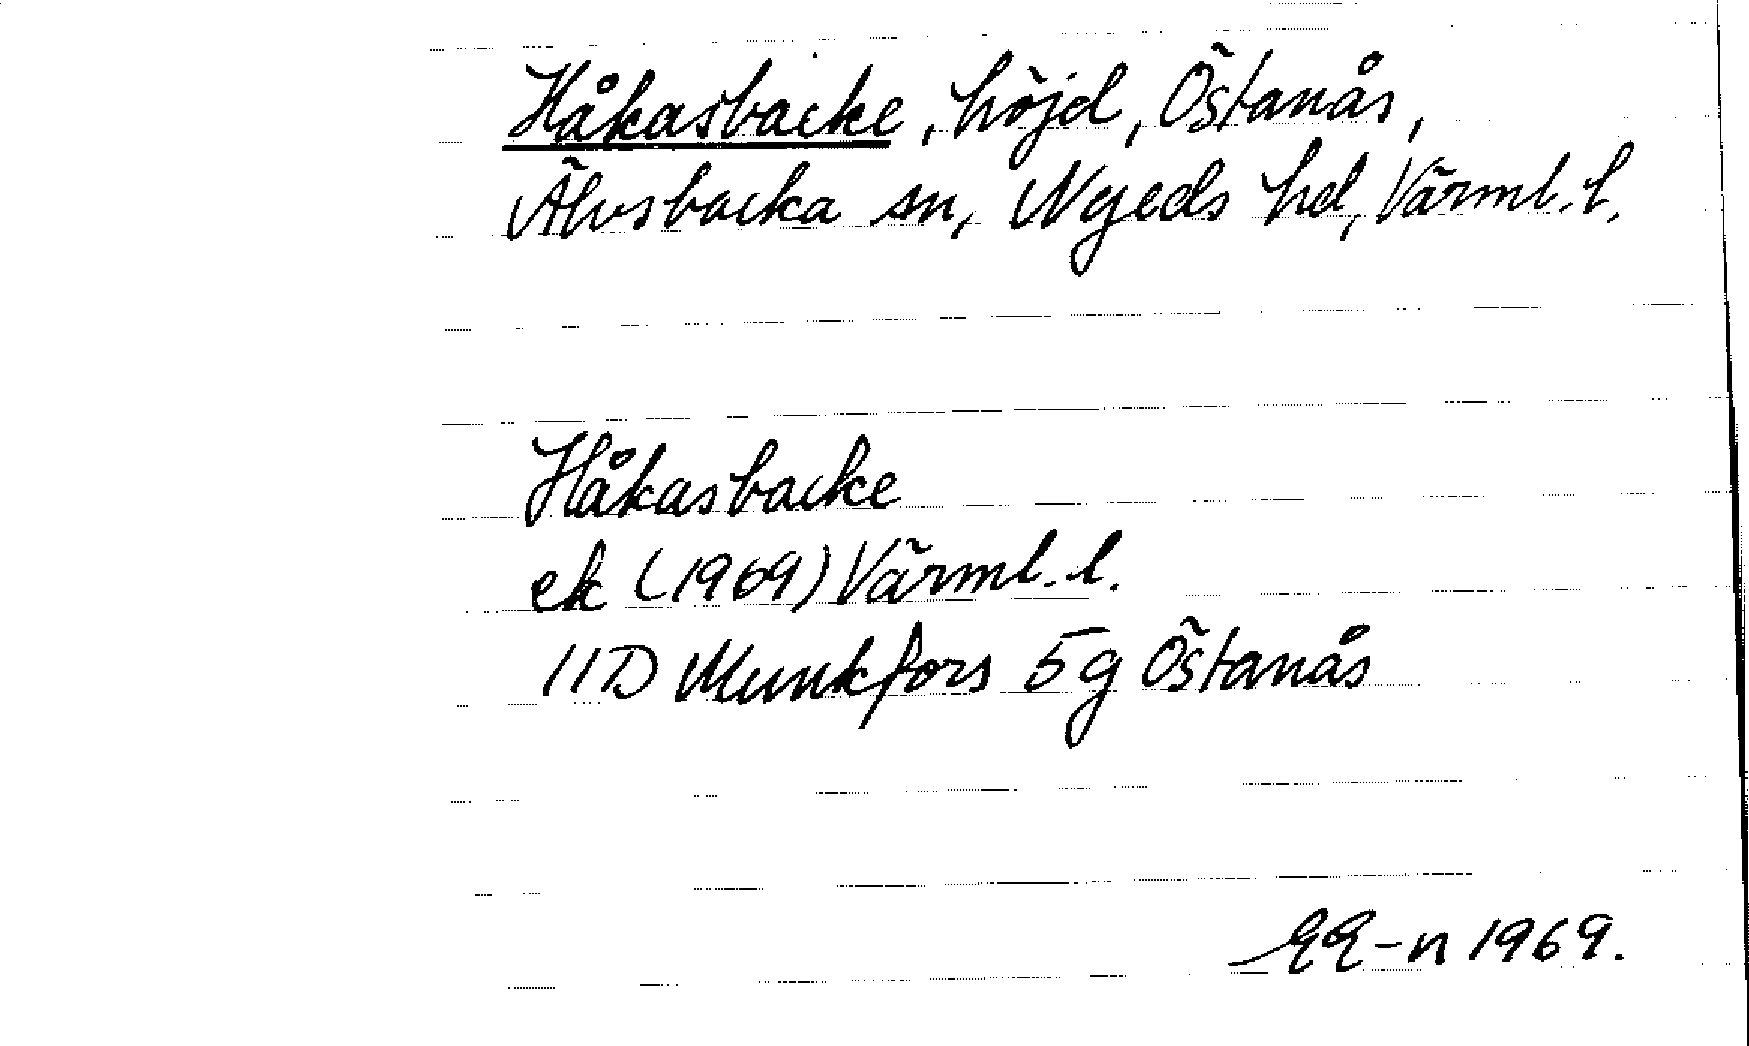 Håkasbacke, höjd, Östanås,
Älvsbacka sn, Nyeds hd, Värml. l.
Håkasbacke
ek (1969) Värml. l.
11D Munkfors 5g Östanås
EE-n 1969.